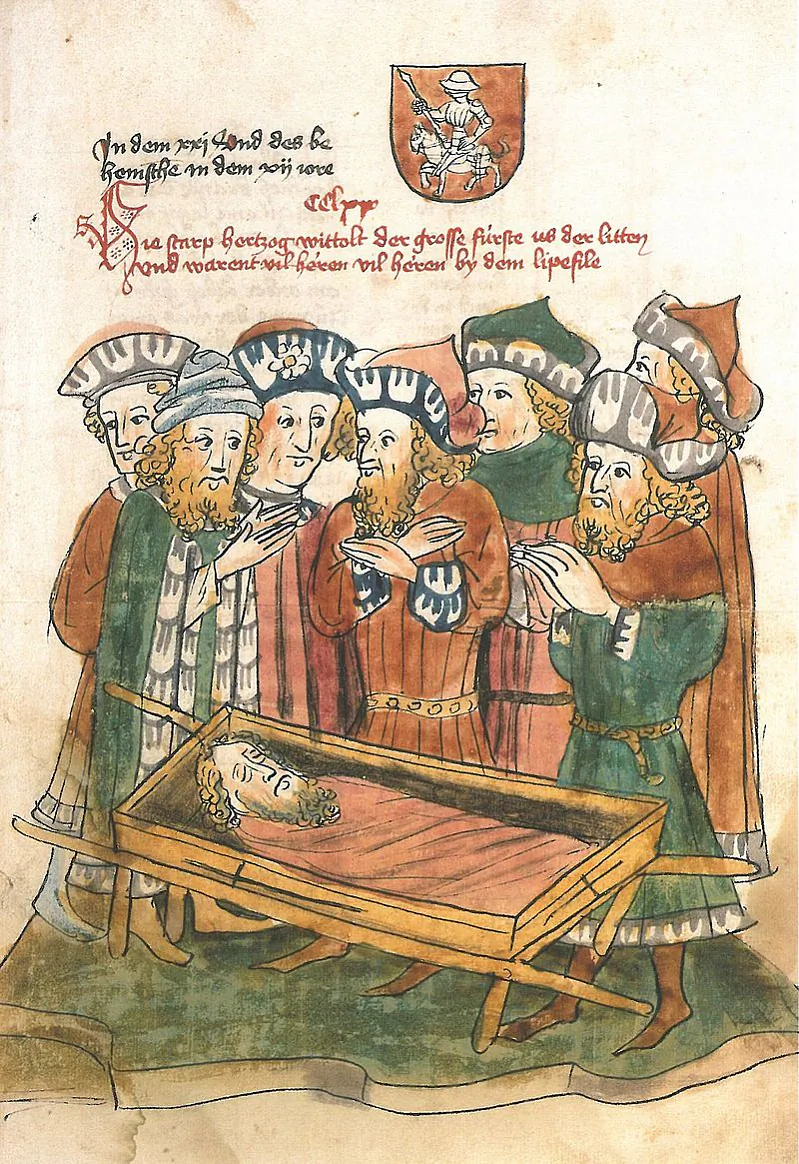 In dem xxj Und des be
hemschē in dem xvij iore
CClxx
Hie starp hertzog wittolt der grosse fúrste us der litten
vnd warent vil héren vil héren by dem lipefile